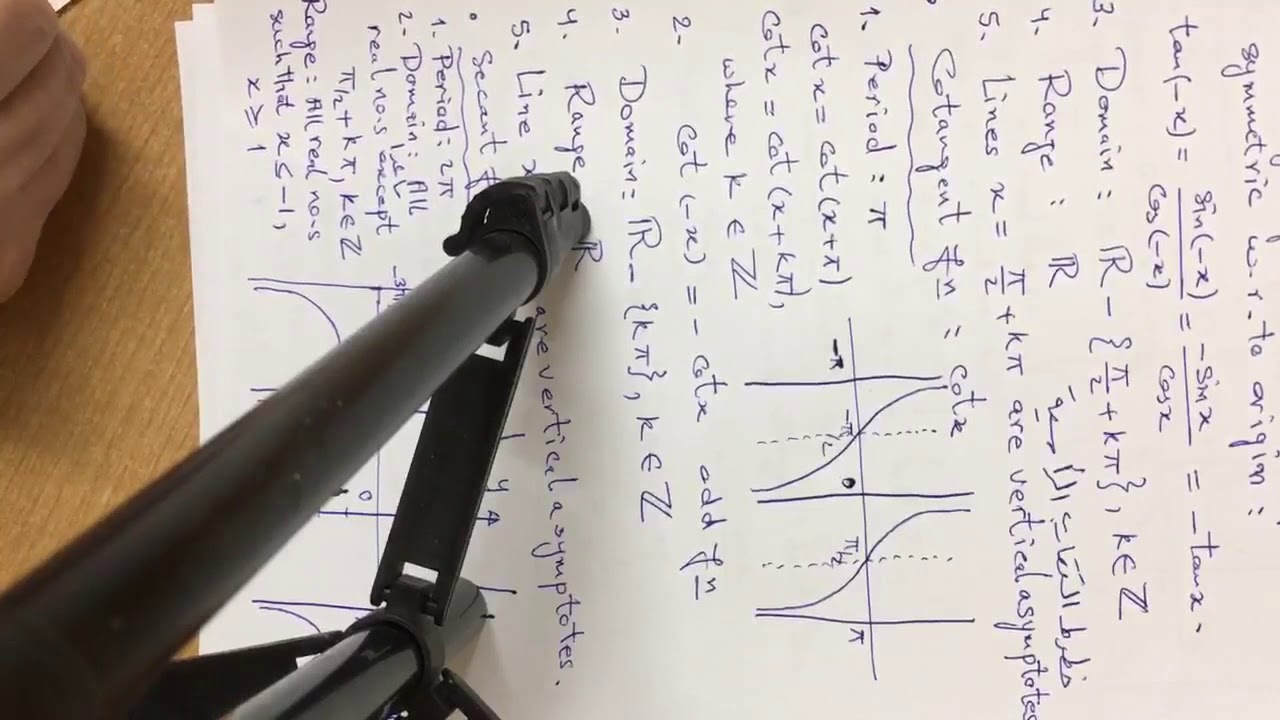 symmetric w.r.to origin :
tan(-x) = sin(-x)/cos(-x) = -sinx/cosx = -tanx.
3. Domain : ℝ - {π/2 + kπ}, k∈ℤ
4. Range : ℝ
5. Lines x = π/2 + kπ are vertical asymptotes
Cotangent fn : cotx
1. Period : π
cotx = cot(x+π)
cotx = cot(x+kπ),
where k ∈ ℤ
-π
-π/2
0
π/2
π
2. cot(-x) = -cotx odd fn
3. Domain : ℝ - {kπ}, k∈ℤ
4. Range ℝ
5. Line x are vertical asymptotes.
Secant
1. Period : 2π
2. Domain : All
real no.s except
π/2 + kπ, k∈ℤ
Range : All real no.s
such that x ≤ -1,
x ≥ 1
y
0